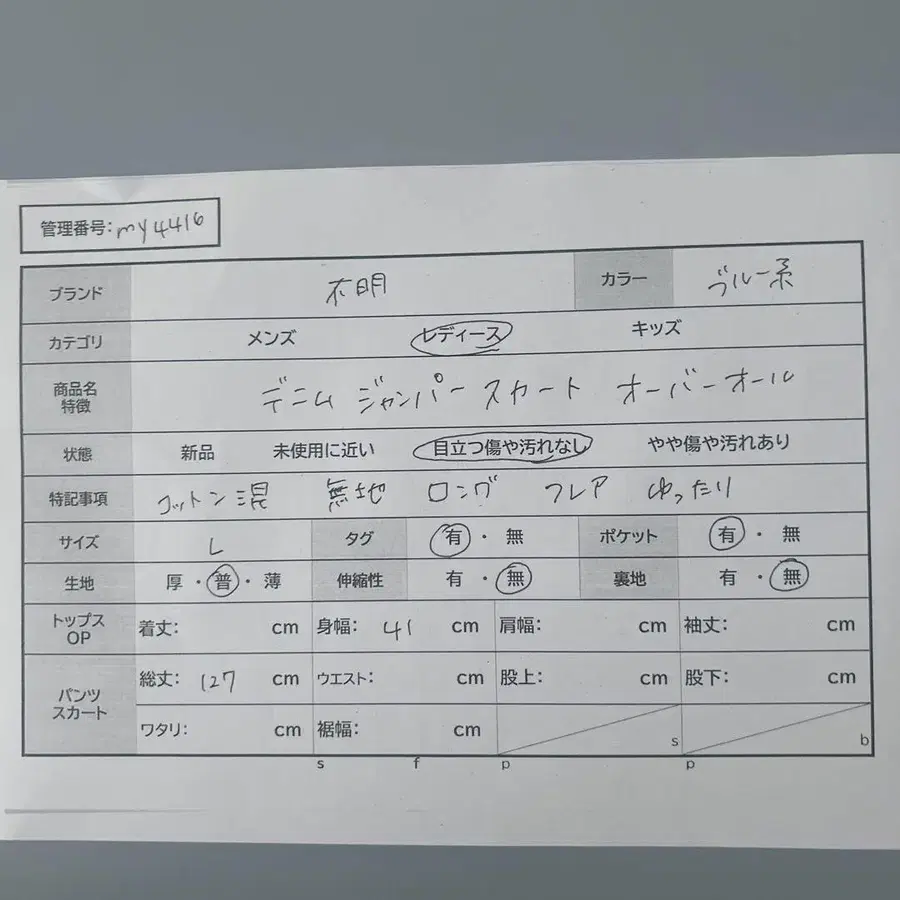 管理番号: my4416
ブランド 不明 カラー ブルー系
カテゴリ メンズ レディース キッズ
商品名 特徴 デニム ジャンパースカート オーバーオール
状態 新品 未使用に近い 目立つ傷や汚れなし やや傷や汚れあり
特記事項 コットン混 無地 ロング フレア ゆったり
サイズ L タグ 有・無 ポケット 有・無
生地 厚・普・薄 伸縮性 有・無 裏地 有・無
トップス OP 着丈: cm 身幅: 41 cm 肩幅: cm 袖丈: cm
パンツ スカート 総丈: 127 cm ウエスト: cm 股上: cm 股下: cm
ワタリ: cm 裾幅: cm s b
s f p p